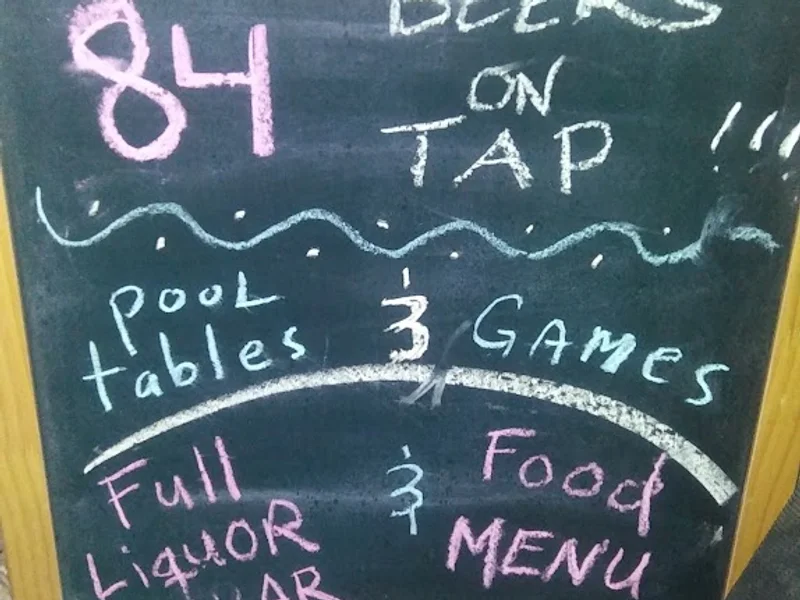 84 BEERS
ON
TAP !!!
POOL
tables & GAMES
Full & Food
LiquOR MENU
BAR